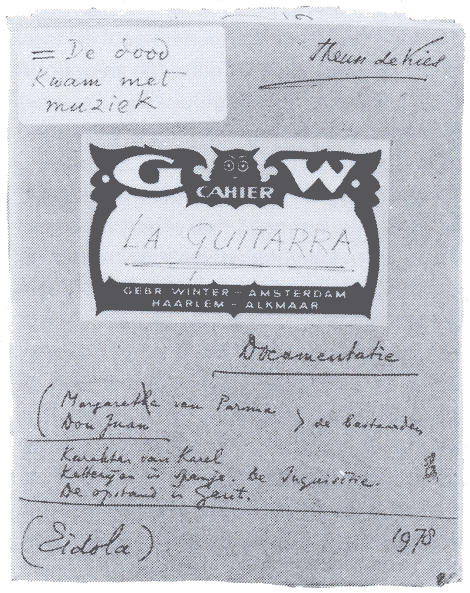 = De dood
kwam met
muziek
Theun de Vries
G.W.
CAHIER
LA GUITARRA
GEBR. WINTER - AMSTERDAM
HAARLEM - ALKMAAR
Documentatie
( Margaretha van Parma
Don Juan > de bastaarden
Karakter van Karel
Ketterijen in Spanje. De Inquisitie.
De opstand in Gent.
(Eidola) 1978